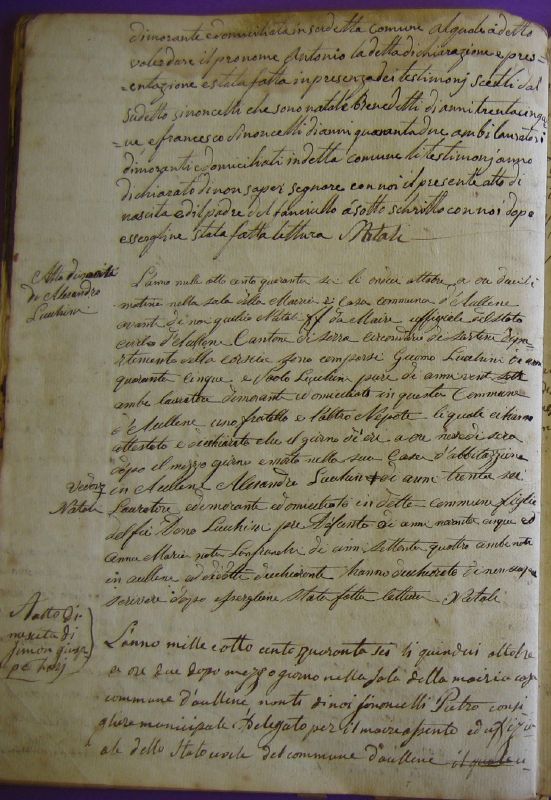 dimorante e domiciliata in sudetta comune al quale à detto
voler dare il pronome Antonio la detta dichiarazione e pres=
=entazione e stata fatta in presenza dei testimonj scelti dal
sudetto sinoncelli che sono natale Benedetti di anni trentacinqu
=ue, e francesco Sinoncelli di anni quaranta due ambi lauratori
dimoranti e domiciliati in detta comune li testimonj anno
dichiarato di non saper segnare con noi il presente atto di
nascita ed il padre del fanciullo à sotto schritto con noi dopo
essergline stata fatta lettura Natali
Atto di morte
di Alesandro
Lucchini
L'anno mille otto cento quaranta sei li undici ottobre a ore dieci di
matina nella sala della Maeria e Casa communa d'Aullene
avant di noi Natali Maire uffiziale del stato
civile d'Aullene Cantone di Serra circondario di Sartene dipa=
rtimento della Corsica sono comparsi Giacomo Lucchini di anni
quaranta cinque e Paolo Lucchini pure di anni vent sette
ambi lauratori dimoranti e domiciliati in questa Commune
d'Aullene uno fratello e l'altro Nepote li quali ci hanno
attestato e dichiarato che il giorno di ieri a ore nove di sera
dopo il mezzo giorno e morto nella sua Casa d'abbitazione
in Aullene Alesandro Lucchini di anni trenta sei
vedovo
Natali
Lauratore e dimorante e domiciliato in detta commune figlio
del fu Dono Lucchini pre Difunto di anni novanta cinque ed
Anna Maria nata Lonfranchi di anni settanta quattro ambi nati
in aullene ed dichiarante hanno dichiarato di non saper
scrivere dopo essergliene stata fatta lettura Natali
N atto di
nascita di
simon giuse
pe
L'anno mille e otto cento quaranta sei li quindici ottobre
a ore due dopo mezzo giorno nella sala della maeria casa
commune d'aullene, nonti di noi sinoncelli Pietro consi
gliere municipale Delegato per il maire assente ed uffizi
ale dello stato civile del commune d'aullene